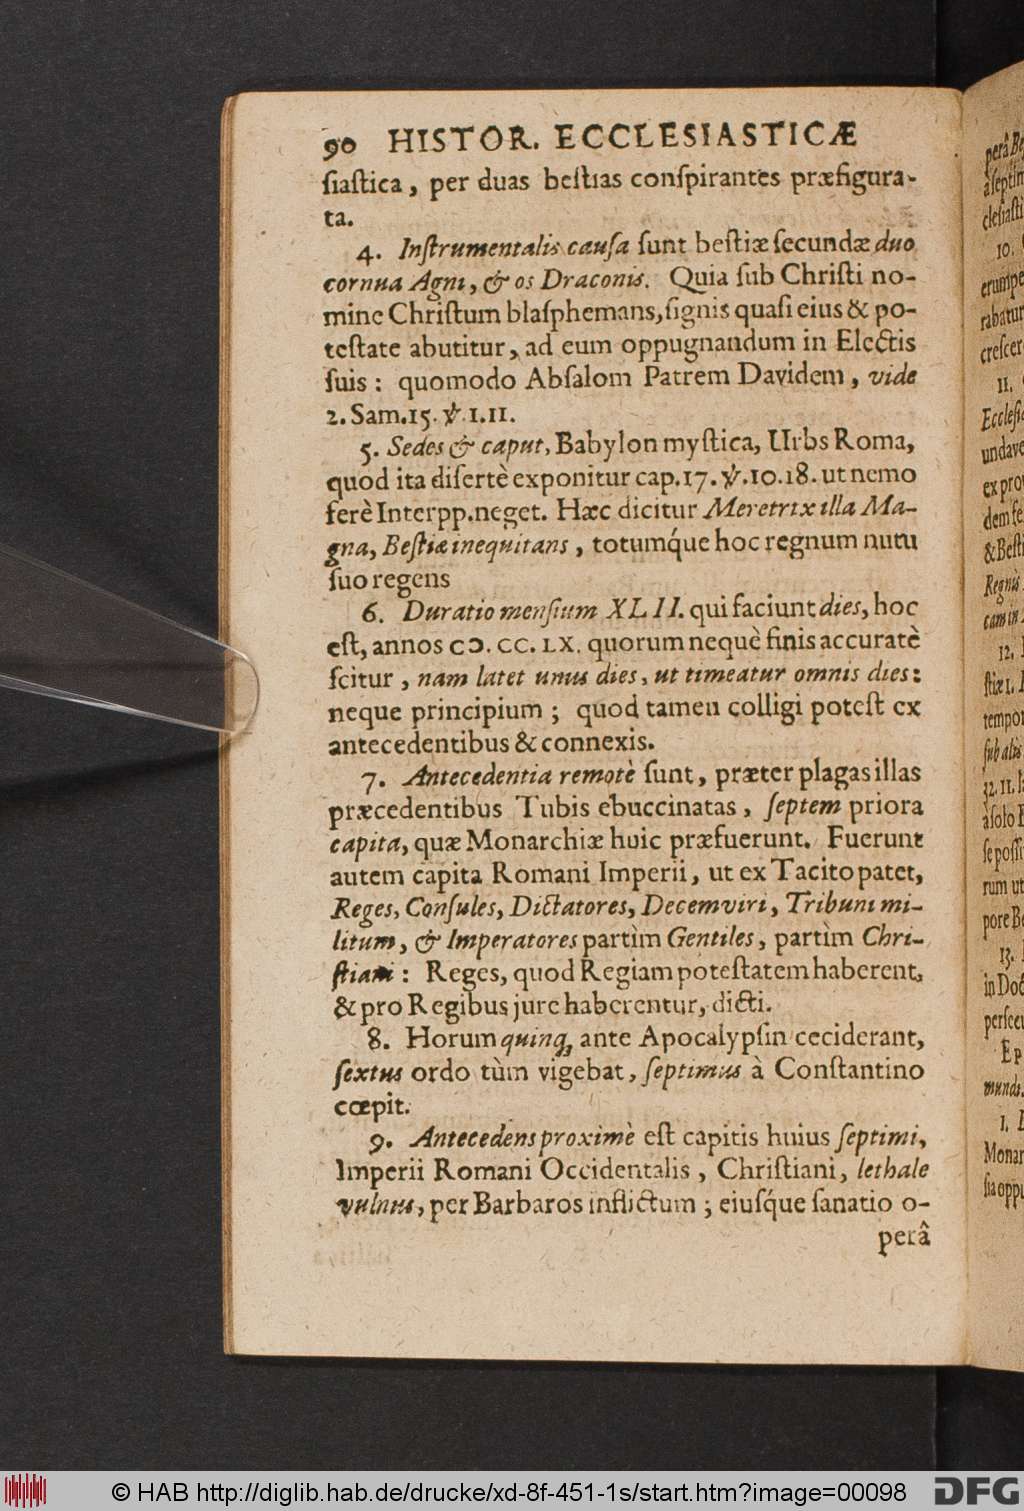 90 HISTOR. ECCLESIASTICÆ
ſiaſtica, per duas beſtias conſpirantes præfigura-
ta.
4. Inſtrumentalis cauſa ſunt beſtiæ ſecundæ duo
cornua Agni, & os Draconis. Quia ſub Chriſti no-
mine Chriſtum blaſphemans, ſignis quaſi eius & po-
teſtate abutitur, ad eum oppugnandum in Electis
ſuis: quomodo Abſalom Patrem Davidem, vide
2. Sam. 15. ℣. 1. 11.
5. Sedes & caput, Babylon myſtica, Urbs Roma,
quod ita diſertè exponitur cap. 17. ℣. 10. 18. ut nemo
ferè Interpp. neget. Hæc dicitur Meretrix illa Ma-
gna, Beſtiæ inequitans, totumq́ue hoc regnum nutu
ſuo regens
6. Duratio menſium XLII. qui faciunt dies, hoc
eſt, annos CIↃ. CC. LX. quorum nequè finis accuratè
ſcitur, nam latet unus dies, ut timeatur omnis dies:
neque principium; quod tamen colligi poteſt ex
antecedentibus & connexis.
7. Antecedentia remotè ſunt, præter plagas illas
præcedentibus Tubis ebuccinatas, ſeptem priora
capita, quæ Monarchiæ huic præfuerunt. Fuerunt
autem capita Romani Imperii, ut ex Tacito patet,
Reges, Conſules, Dictatores, Decemviri, Tribuni mi-
litum, & Imperatores partìm Gentiles, partìm Chri-
ſtiani: Reges, quod Regiam poteſtatem haberent,
& pro Regibus jure haberentur, dicti.
8. Horum quinq; ante Apocalypſin ceciderant,
ſextus ordo tùm vigebat, ſeptimus à Conſtantino
cœpit.
9. Antecedens proximè eſt capitis huius ſeptimi,
Imperii Romani Occidentalis, Chriſtiani, lethale
vulnus, per Barbaros inflictum; eiuſq́ue ſanatio o-
perâ
© HAB http://diglib.hab.de/drucke/xd-8f-451-1s/start.htm?image=00098
DFG